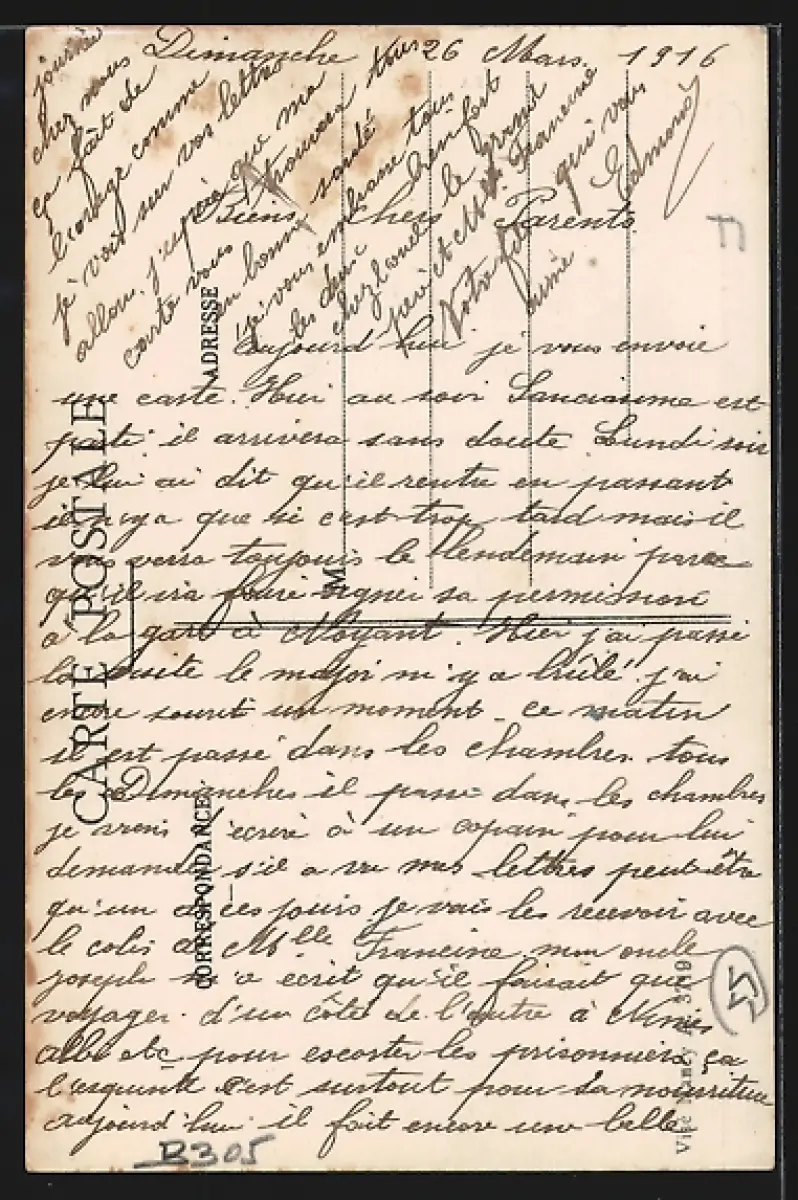 Dimanche 26 Mars 1916
Biens Chers Parents
Aujourd'hui je vous envoie
une carte. Hier au soir est
parti il arrivera sans doute Lundi soir
je lui ai dit qu'il rentre en passant
il n'y a que si c'est trop tard mais il
vous verra toujours le lendemain parce
qu'il ira faire signer sa permission
à la gare à Noyant. Hier j'ai passé
la visite le major m'y a brûlé j'ai
encore sourit un moment ce matin
il est passé dans les chambres tous
les Dimanches il passe dans les chambres
je viens d'écrire à un copain pour lui
demander s'il a vu mes lettres peut-être
qu'un de ces jours je vais les recevoir avec
le colis de Mlle Francine mon oncle
joseph m'a écrit qu'il faisait que
voyager d'un côté de l'autre à Nimes
albi etc pour escorter les prisonniers ça
l'esquinte c'est surtout pour sa nourriture
aujourd'hui il fait encore une belle
journée
chez nous
ça fait de
l'orage comme
je vois sur vos lettres
allons j'espère que ma
carte vous trouvera tous
en bonne santé
je vous embrasse tous
les deux bien fort
chez le grand
père et Mlle Francine
Votre fils qui vous
aime
Edmond
CARTE POSTALE
ADRESSE
M
CORRESPONDANCE
55
B305